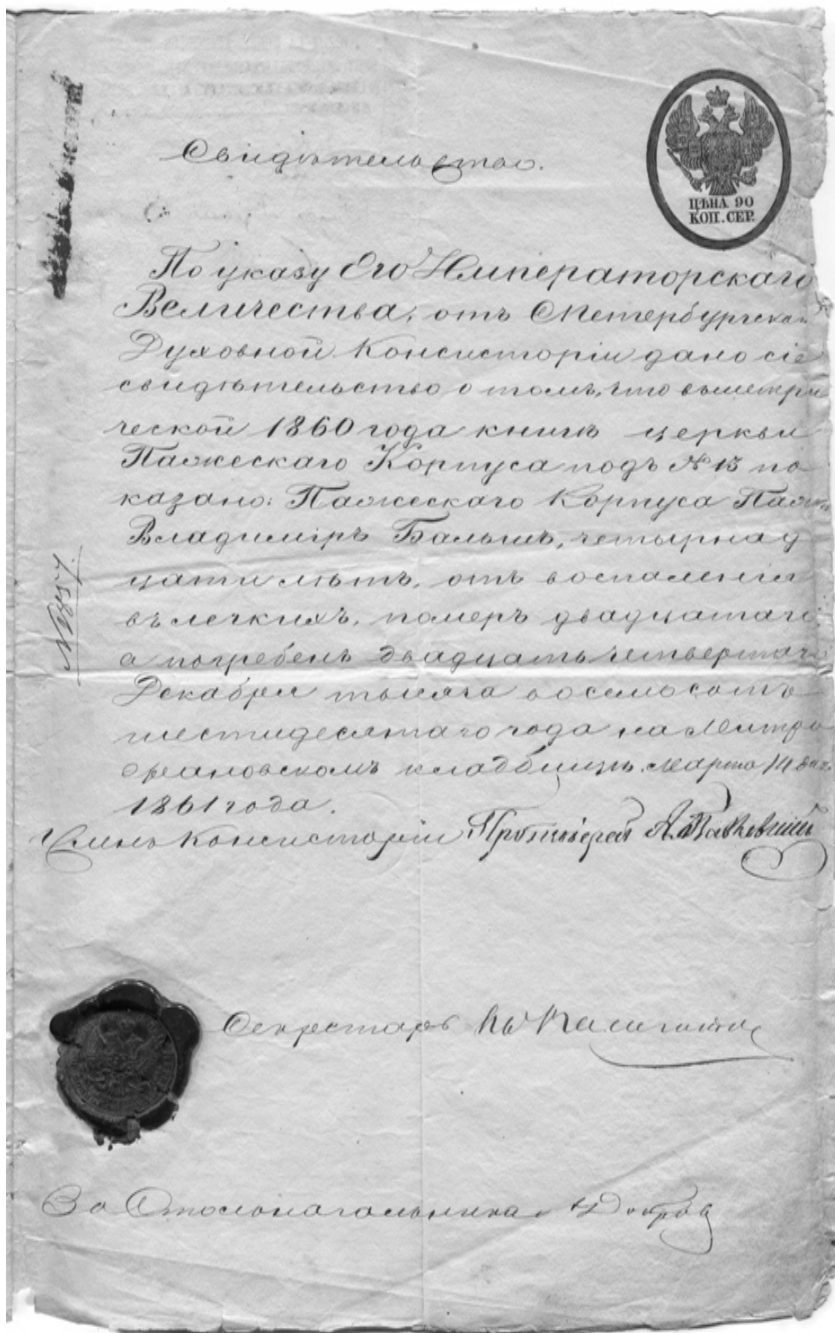 Свидѣтельство.
ЦѢНА 90
КОП. СЕР.
По указу Его Императорскаго
Величества, отъ СПетербургской
Духовной Консисторіи дано сіе
свидѣтельство о томъ, что въ метри
ческой 1860 года книгѣ церкви
Пажескаго Корпуса подъ № 13 по
казано: Пажескаго Корпуса Пажъ
Владиміръ Балшъ, четырнад
цати лѣтъ, отъ воспаленія
въ легкихъ, померъ двадцатаго
а погребенъ двадцать четвертаго
Декабря тысяча восемьсотъ
шестидесятаго года на Митро
фановскомъ кладбищѣ. Марта 14 дня
1861 года.
Членъ Консисторіи Протоіерей А.
Секретарь
За Столоначальника